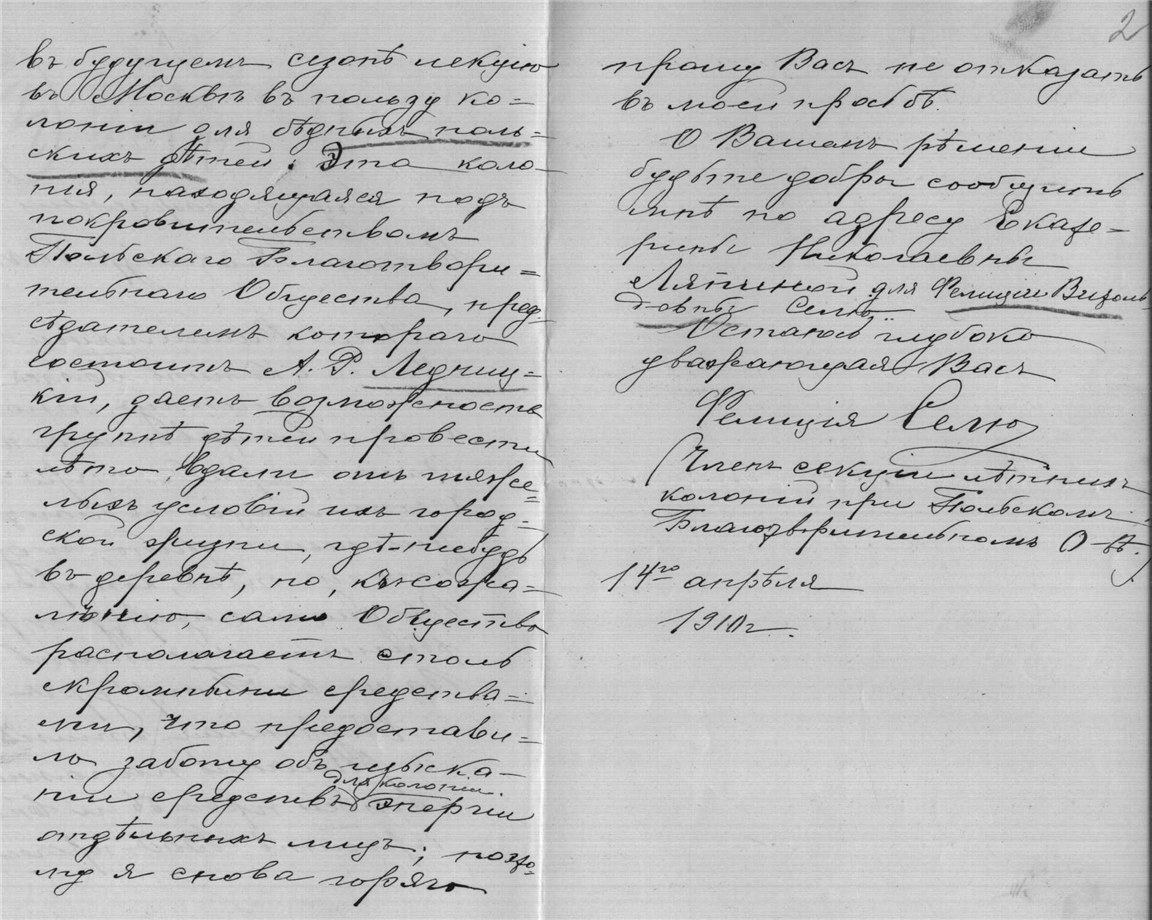 въ будущемъ сезонѣ лекцію
въ Москвѣ въ пользу ко=
лоніи для бѣдныхъ поль=
скихъ дѣтей. Эта коло-
нія, находящаяся подъ
покровительствомъ
Польскаго Благотвори=
тельнаго Общества, пред-
сѣдателемъ котораго
состоитъ А. Р. Ледниц=
кій, даетъ возможность
группѣ дѣтей провести
лѣто вдали отъ тяже=
лыхъ условій ихъ город-
ской жизни, гдѣ-нибудь
въ деревнѣ, но, къ сожа=
лѣнію, само Общество
располагаетъ столь
скромными средства=
ми, что предостави=
ло заботу объ изыска-
для колоніи
ніи средствъ энергіи
отдѣльныхъ лицъ; поэто-
му я снова горячо
2
прошу Васъ не отказать
въ моей просьбѣ.
О Вашемъ рѣшеніи
будьте добры сообщить
мнѣ по адресу Екате-
рины Николаевны
Ляпиной для Фелиціи Витоль
довны Селю.
Остаюсь глубоко
уважающая Васъ
Фелиція Селю
Членъ секціи лѣтнихъ
колоній при Польскомъ
Благотворительномъ О-вѣ.
14го апрѣля
1910 г.